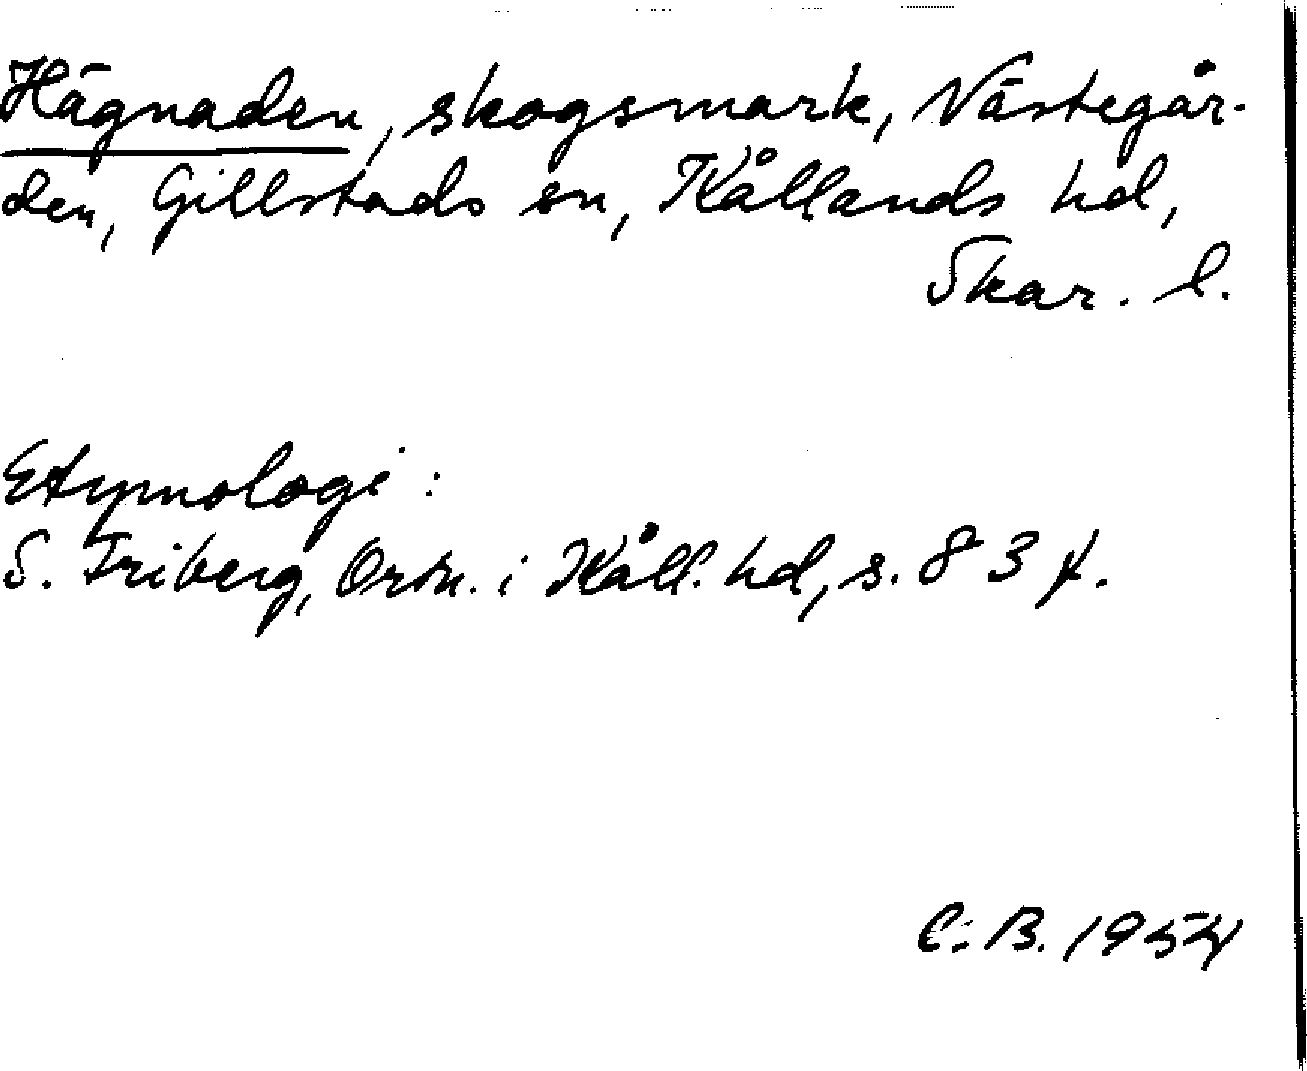 Hägnaden, skogsmark, Västegår-
den, Gillstads sn, Kållands hd,
Skar. l.
Etymologi:
S. Friberg, Ortn. i Kåll. hd, s. 83 f.
C. B. 1954